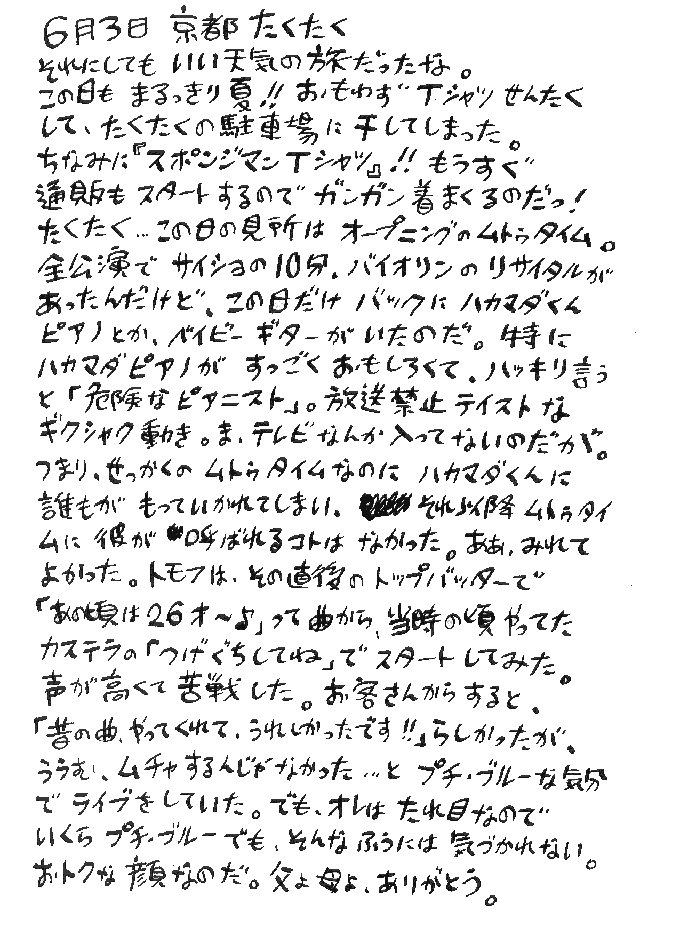 6月3日 京都 たくたく
それにしても いい天気の旅だったな。
この日も まるっきり夏!! おもわず Tシャツ せんたく
して、たくたくの駐車場に 干してしまった。
ちなみに『スポンジマンTシャツ』!! もうすぐ
通販も スタートするので ガンガン着まくるのだっ!
たくたく…この日の見所は オープニングのムトゥタイム。
全公演で サイショの10分、バイオリンの リサイタルが
あったんだけど、この日だけ バックに ハカマダくん
ピアノとか、ベイビーギターがいたのだ。特に
ハカマダピアノが すっごく おもしろくて、ハッキリ言う
と「危険なピアニスト」。放送禁止テイストな
ギクシャク動き。ま、テレビなんか入ってないのだが。
つまり、せっかくの ムトゥタイムなのに ハカマダくんに
誰もが もっていかれてしまい、 それ以降 ムトゥタイ
ムに 彼が 呼ばれるコトは なかった。ああ、みれて
よかった。トモフは、その直後のトップバッターで
「あの頃は26才〜♪」って曲から、当時の頃やってた
カステラの「つげぐちしてね」でスタートしてみた。
声が高くて苦戦した。お客さんからすると、
「昔の曲、やってくれて、うれしかったです!!」らしかったが、
ううむ、ムチャするんじゃなかった…と プチ・ブルーな気分
で ライブをしていた。でも、オレは たれ目なので
いくら プチ・ブルーでも、そんなふうには 気づかれない。
おトクな 顔なのだ。父よ母よ、ありがとう。